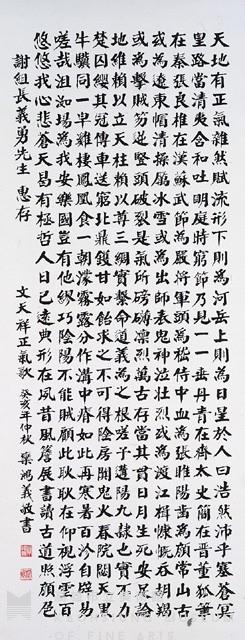 天地有正氣雜然賦流形下則為河岳上則為日星於人曰浩然沛乎塞蒼冥
皇路當清夷含和吐明庭時窮節乃見一一垂丹青在齊太史簡在晉董狐筆
在秦張良椎在漢蘇武節為嚴將軍頭為嵇侍中血為張睢陽齒為顏常山舌
或為遼東帽清操厲冰雪或為出師表鬼神泣壯烈或為渡江楫慷慨吞胡羯
或為擊賊笏逆豎頭破裂是氣所磅礴凜烈萬古存當其貫日月生死安足論
地維賴以立天柱賴以尊三綱實繫命道義為之根嗟予遘陽九隸也實不力
楚囚纓其冠傳車送窮北鼎鑊甘如飴求之不可得陰房闐鬼火春院閟天黑
牛驥同一皁雞棲鳳凰食一朝濛霧露分作溝中瘠如此再寒暑百沴自辟易
嗟哉沮洳場為我安樂國豈有他繆巧陰陽不能賊顧此耿耿在仰視浮雲白
悠悠我心悲蒼天曷有極哲人日已遠典形在夙昔風簷展書讀古道照顏色
謝組長義勇先生 惠存
文天祥正氣歌 癸亥年仲秋 樂鴻義敬書